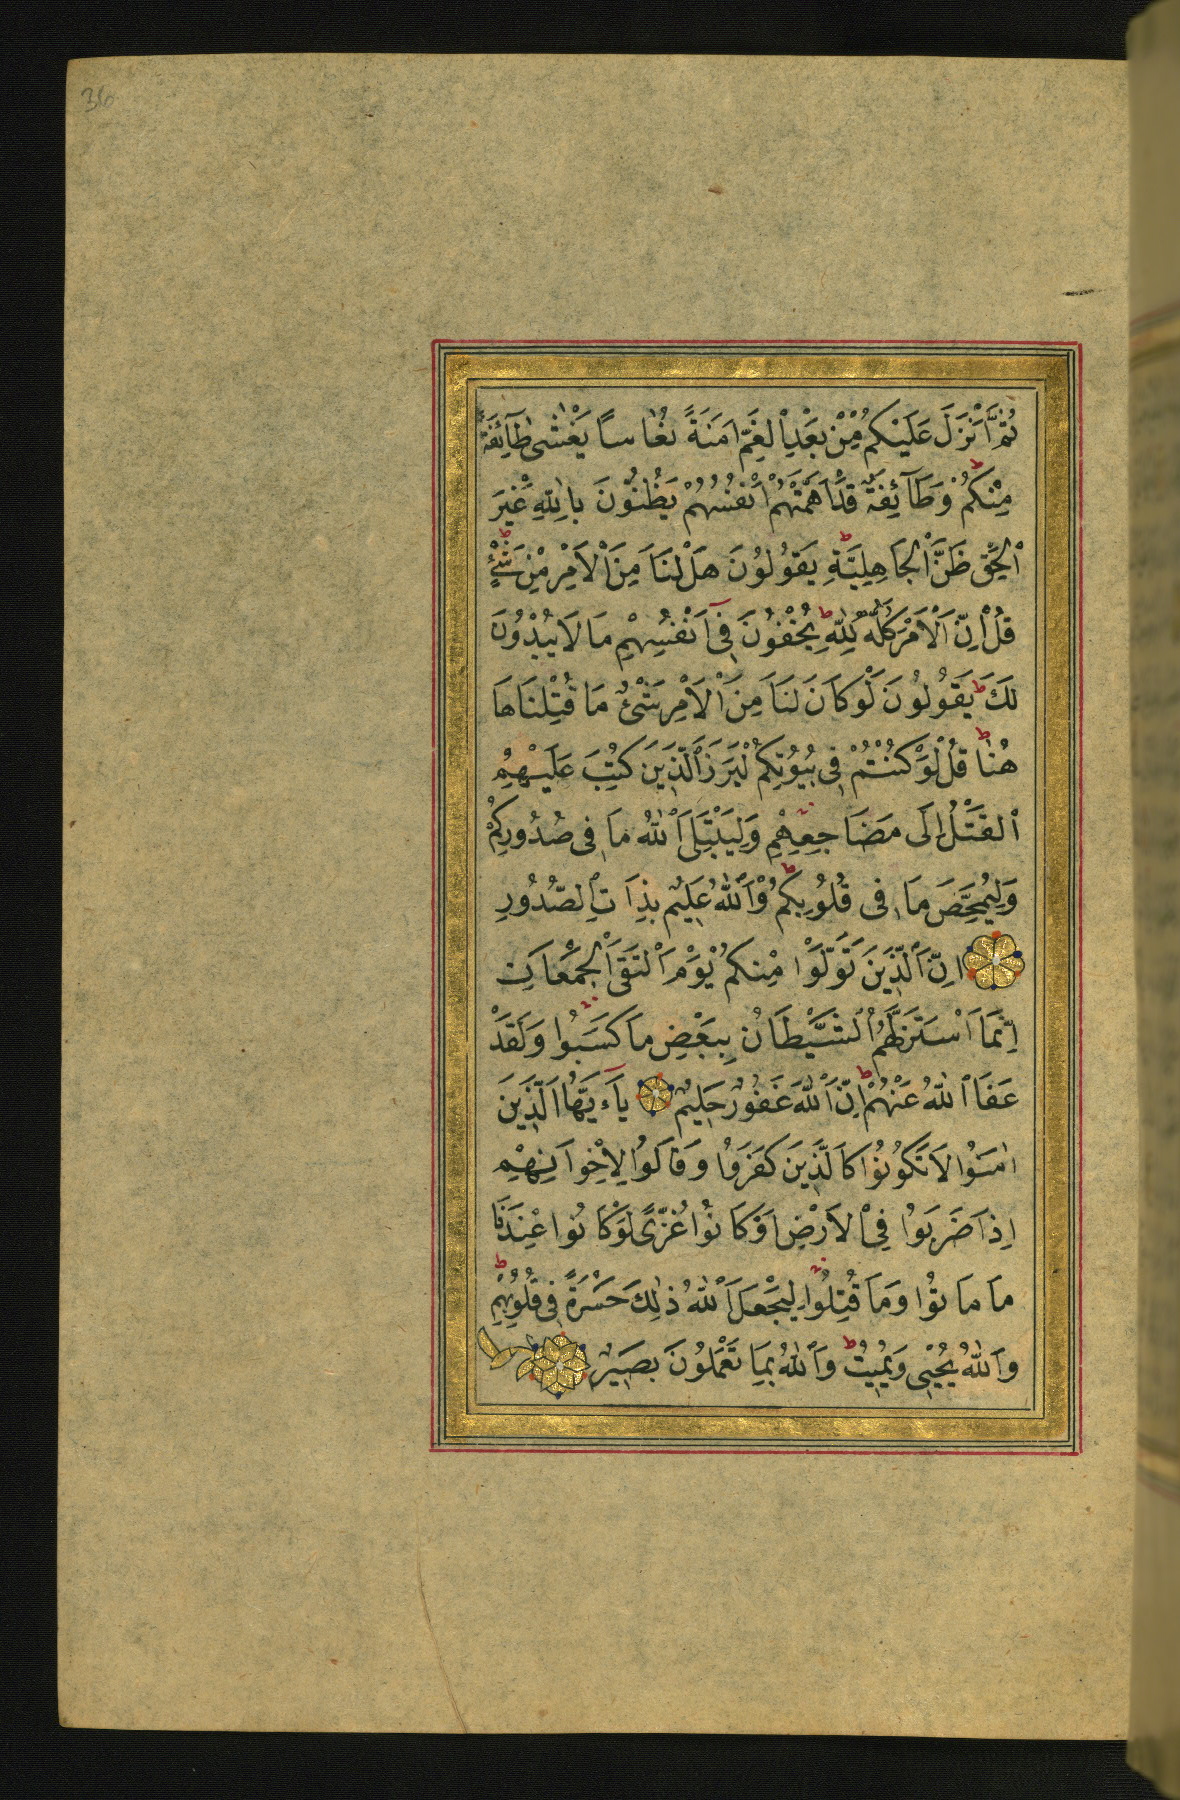 36
ثُمَّ اَنْزَلَ عَلَيْكُمْ مِنْ بَعْدِ الْغَمِّ اَمَنَةً نُعَاسًا يَغْشٰى طَآئِفَةً
مِنْكُمْ وَطَآئِفَةٌ قَدْ اَهَمَّتْهُمْ اَنْفُسُهُمْ يَظُنُّونَ بِاللّٰهِ غَيْرَ
الْحَقِّ ظَنَّ الْجَاهِلِيَّةِ ط يَقُولُونَ هَلْ لَنَا مِنَ الْاَمْرِ مِنْ شَيْءٍ ط
قُلْ اِنَّ الْاَمْرَ كُلَّهُ لِلّٰهِ ط يُخْفُونَ فِىٓ اَنْفُسِهِمْ مَا لَا يُبْدُونَ
لَكَ ط يَقُولُونَ لَوْ كَانَ لَنَا مِنَ الْاَمْرِ شَىْءٌ مَا قُتِلْنَا هَا
هُنَا ط قُلْ لَوْ كُنْتُمْ فِى بُيُوتِكُمْ لَبَرَزَ الَّذِينَ كُتِبَ عَلَيْهِمُ
الْقَتْلُ اِلٰى مَضَاجِعِهِمْ وَلِيَبْتَلِىَ اللّٰهُ مَا فِى صُدُورِكُمْ
وَلِيُمَحِّصَ مَا فِى قُلُوبِكُمْ ط وَاللّٰهُ عَلِيمٌ بِذَاتِ الصُّدُورِ
اِنَّ الَّذِينَ تَوَلَّوْا مِنْكُمْ يَوْمَ الْتَقَى الْجَمْعَانِ
اِنَّمَا اسْتَزَلَّهُمُ الشَّيْطَانُ بِبَعْضِ مَا كَسَبُوا وَلَقَدْ
عَفَا اللّٰهُ عَنْهُمْ ط اِنَّ اللّٰهَ غَفُورٌ حَلِيمٌ يَآءَيُّهَا الَّذِينَ
اٰمَنُوا لَا تَكُونُوا كَالَّذِينَ كَفَرُوا وَقَالُوا لِاِخْوَانِهِمْ
اِذَا ضَرَبُوا فِى الْاَرْضِ اَوْ كَانُوا غُزًّى لَوْ كَانُوا عِنْدَنَا
مَا مَاتُوا وَمَا قُتِلُوا لِيَجْعَلَ اللّٰهُ ذٰلِكَ حَسْرَةً فِى قُلُوبِهِمْ ط
وَاللّٰهُ يُحْيِى وَيُمِيتُ ط وَاللّٰهُ بِمَا تَعْمَلُونَ بَصِيرٌ